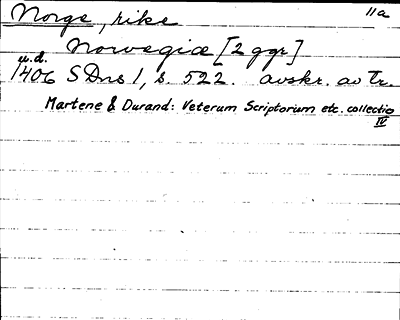 Norge, rike 11a
Norwegiæ [2 ggr]
u.d.
1406 SDns 1, s. 522. avskr. av Tr.
Martene & Durand: Veterum Scriptorum etc. collectio
IV